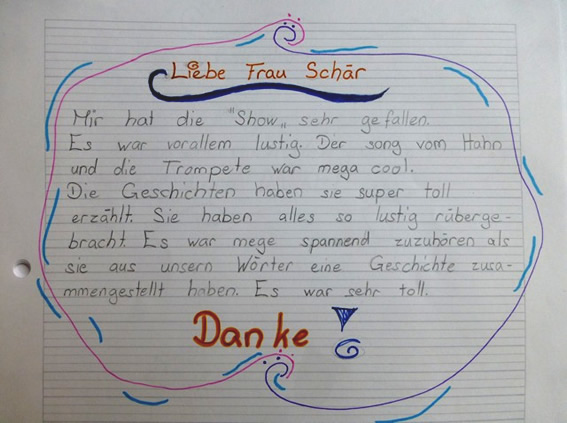 Liebe Frau Schär
Mir hat die "Show„ sehr gefallen.
Es war vorallem lustig. Der song vom Hahn
und die Trompete war mega cool.
Die Geschichten haben sie super toll
erzählt. Sie haben alles so lustig rüberge-
bracht. Es war mege spannend zuzuhören als
sie aus unsern Wörter eine Geschichte zusa-
mmengestellt haben. Es war sehr toll.
Danke!